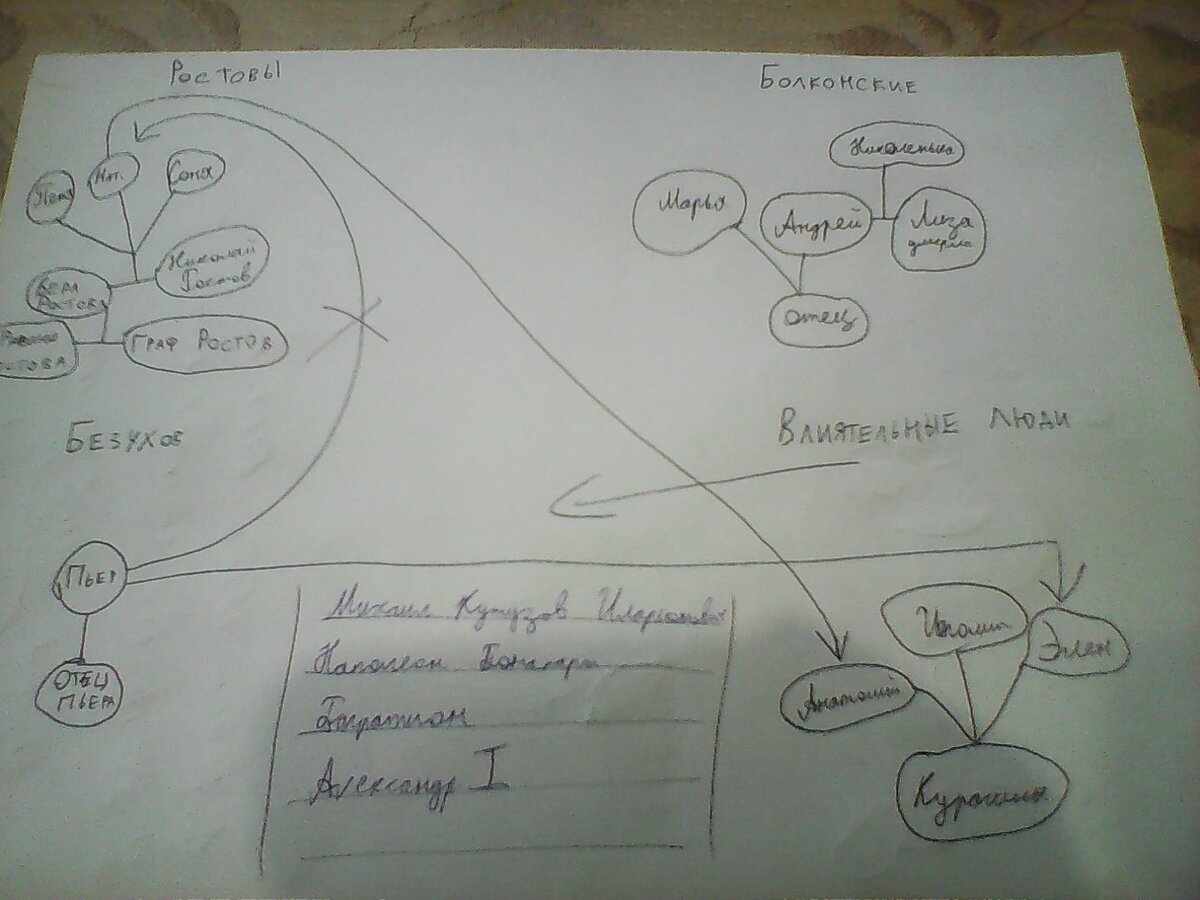 Ростовы
Болконские
Петя
Нат.
Соня
Николай
Ростов
Вера
Ростова
Ростова
Граф Ростов
Николенька
Марья
Андрей
Лиза
умерла
Отец
Безухов
Влиятельные люди
Пьер
Отец
Пьера
Михаил Кутузов Иларионович
Наполеон Бонапарт
Багратион
Александр I
Иполит
Элен
Анатолий
Курагин